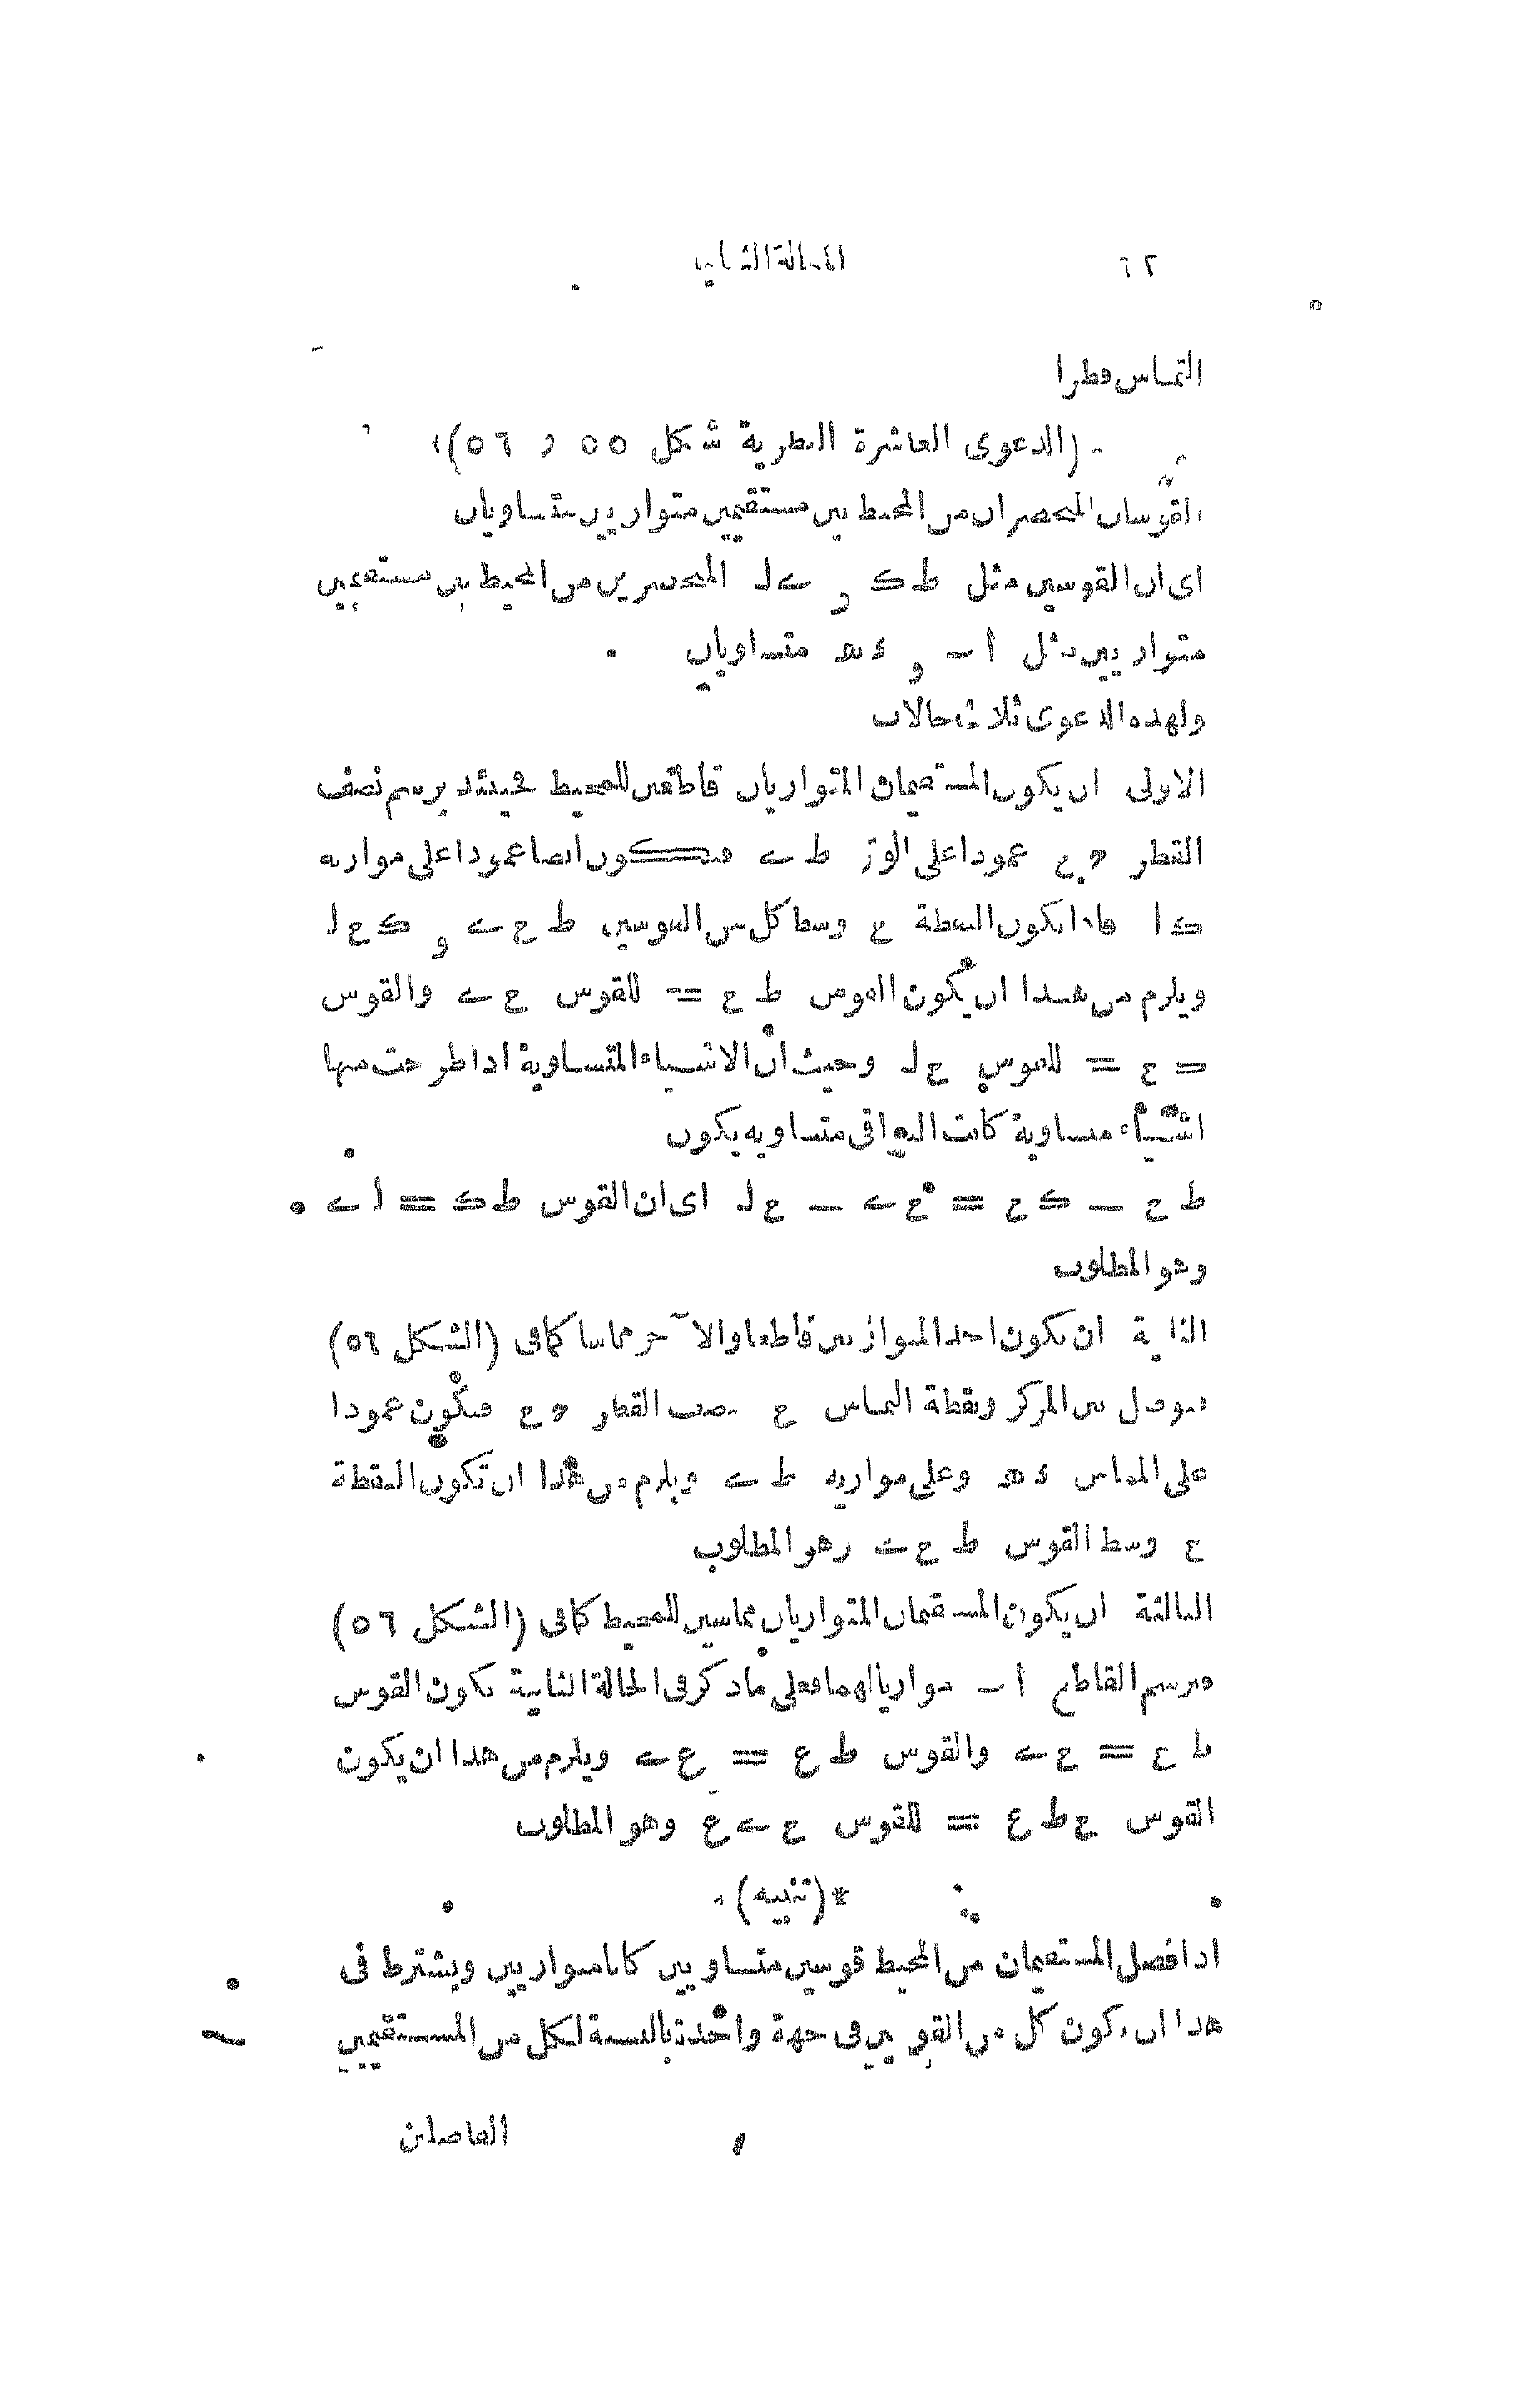 ٦٢ المقالة الثانية
التماس قطرا
(الدعوى العاشرة النظرية شكل ٥٥ و ٥٦)
القوسان المنحصران من المحيط بين مستقيمين متوازيين متساويان
اى ان القوسين مثل ط ك و ى ل المنحصرين من المحيط بين مستقيمين
متوازيين مثل ا ب و د ه متساويان
ولهذه الدعوى ثلاث حالات
الاولى ان يكون المستقيمان المتوازيان قاطعين للمحيط فحينئذ يرسم نصف
القطر م ح عمودا على الوتر ط ى فيكون ايضا عمودا على موازيه
ك ل فاذا تكون النقطة ح وسط كل من القوسين ط ح ى و ك ح ل
ويلزم من هذا ان يكون القوس ط ح = للقوس ح ى والقوس
ك ح = للقوس ح ل وحيث ان الاشياء المتساوية اذا طرحت منها
اشياء متساوية كانت البواقى متساويه يكون
ط ح – ك ح = ح ى – ح ل اى ان القوس ط ك = ل ى
وهو المطلوب
الثانية ان يكون احد المتوازيين قاطعا والآخر مماسا كما فى (الشكل ٥٦)
فيوصل بين المركز ونقطة التماس ح بنصف القطر م ح فيكون عمودا
على المماس د ه وعلى موازيه ط ى ويلزم من هذا ان تكون النقطة
ح وسط القوس ط ح ى وهو المطلوب
الثالثة ان يكون المستقيمان المتوازيان مماسين للمحيط كما فى (الشكل ٥٦)
فيرسم القاطع ا ب موازيا لهما فعلى ما ذكر فى الحالة الثانية يكون القوس
ط ح = ح ى والقوس ط ع = ع ى ويلزم من هذا ان يكون
القوس ح ط ع = للقوس ح ى ع وهو المطلوب
*(تنبيه)*
اذا فصل المستقيمان من المحيط قوسين متساويين كانا متوازيين ويشترط فى
هذا ان يكون كل من القوسين فى جهة واحدة بالنسبة لكل من المستقيمين
الفاصلين